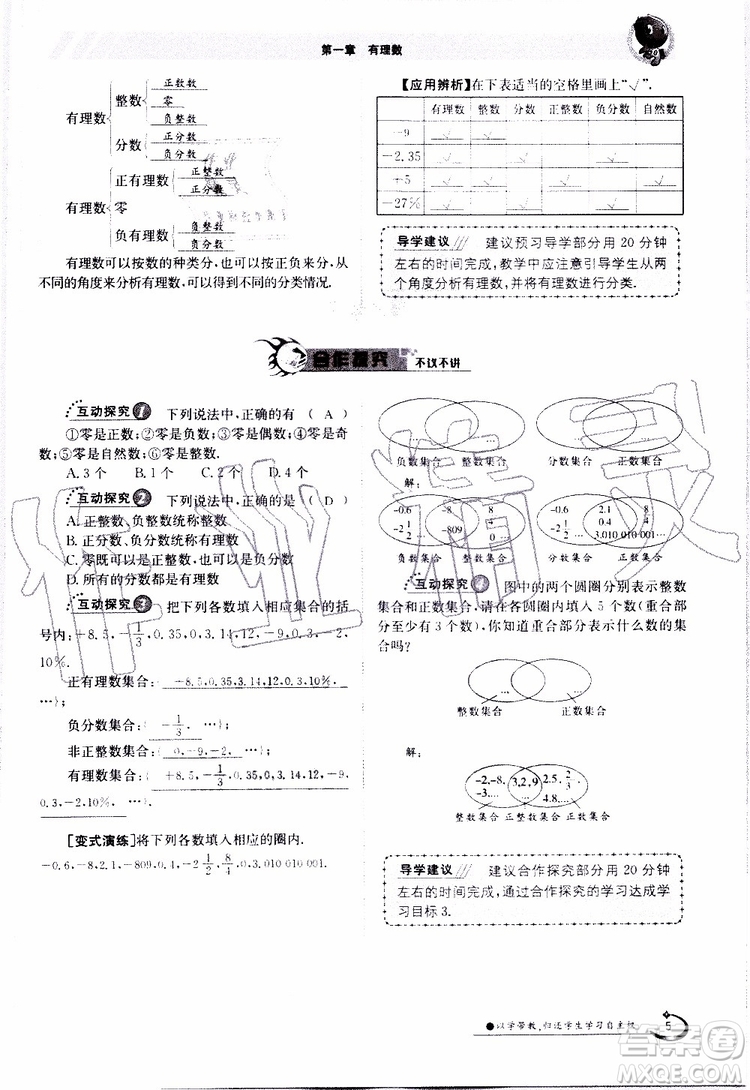 第一章 有理数
有理数
整数
正数数
零
负整数
分数
正分数
负分数
有理数
正有理数
正整数
正分数
零
负有理数
负整数
负分数
有理数可以按数的种类分，也可以按正负来分，从
不同的角度来分析有理数，可以得到不同的分类情况.
【应用辨析】在下表适当的空格里画上“√”.
有理数 整数 分数 正整数 负分数 自然数
-9 √ √
-2.35 √ √ √
+5 √ √ √ √
-27% √ √ √
导学建议 建议预习导学部分用 20 分钟
左右的时间完成，教学中应注意引导学生从两
个角度分析有理数，并能对有理数进行分类.
合作探究 不议不讲
互动探究1 下列说法中，正确的有 （ A ）
①零是正数；②零是负数；③零是偶数；④零是奇
数；⑤零是自然数；⑥零是整数.
A.3个 B.1个 C.2个 D.4个
互动探究2 下列说法中，正确的是 （ D ）
A. 正整数，负整数统称整数
B. 正分数，负分数统称有理数
C. 零既可以是正整数，也可以是负整数
D. 所有的分数都是有理数
互动探究3 把下列各数填入相应集合的括
号内：+8.5，-1/3，0.35，0，3.14，12，-9，0.3，-2，
10%.
正有理数集合：+8.5，0.35，3.14，12，0.3，10%
负分数集合：-1/3，…｝；
非正整数集合：0，-9，-2，…｝；
有理数集合：+8.5，-1/3，0.35，0，3.14，12，-9，
0.3，-2，10%，…｝；
[变式演练]将下列各数填入相应的圈内.
-0.6，-8，2.1，-809，0.4，-2 1/2，8/4，3.010 010 001.
负数集合 整数集合 分数集合 正数集合
解：
-0.6 -2 1/2 -8 -809 8/4 0
-0.6 -2 1/2 2.1 0.4 3.010 010 001… 8/4
负数集合 整数集合 分数集合 正数集合
互动探究4 图中的两个圆圈分别表示整数
集合和正数集合，请在各圆圈内填入 5 个数（重合部
分至少有 3 个数），你知道重合部分表示什么数的集
合吗？
… …
整数集合 正数集合
解：
-2，-8， 3，2，9 2.5，2/3，
-5，… … 4.8，…
整数集合 正整数集合 正数集合
导学建议 建议合作探究部分用 20 分钟
左右的时间完成，通过合作探究的学习达成学
习目标 3.
●以学带教，归还学生学习自主权
5
作业精灵
答案圈